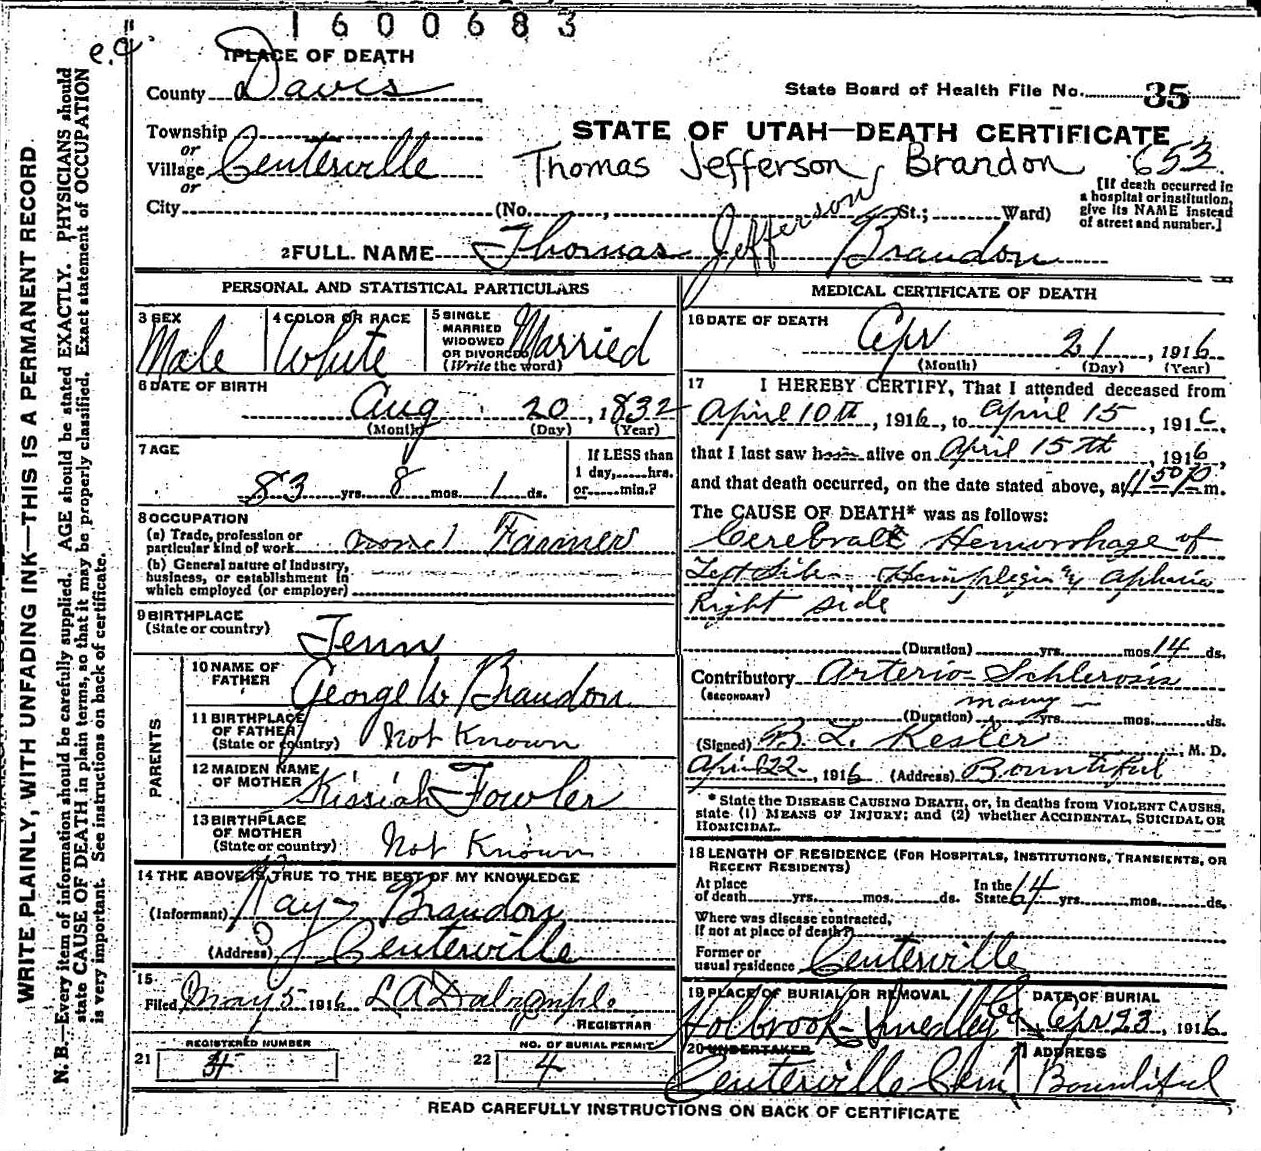 1600683
e.a.
1 PLACE OF DEATH
County Davis
State Board of Health File No. 35
Township
or
Village Centerville
or
STATE OF UTAH—DEATH CERTIFICATE
Thomas Jefferson Brandon 653
[If death occurred in a hospital or institution, give its NAME instead of street and number.]
City (No. , St.; Ward)
2 FULL NAME Thomas Jefferson Brandon
PERSONAL AND STATISTICAL PARTICULARS
3 SEX
Male
4 COLOR OR RACE
White
5 SINGLE
MARRIED
WIDOWED
OR DIVORCED
(Write the word)
Married
6 DATE OF BIRTH
Aug 20, 1832
(Month) (Day) (Year)
7 AGE
83 yrs. 8 mos. 1 ds.
If LESS than
1 day, hrs.
or min.?
8 OCCUPATION
(a) Trade, profession or
particular kind of work Farmer
(b) General nature of Industry,
business, or establishment in
which employed (or employer)
9 BIRTHPLACE
(State or country) Tenn
PARENTS
10 NAME OF
FATHER George W Brandon
11 BIRTHPLACE
OF FATHER
(State or country) Not Known
12 MAIDEN NAME
OF MOTHER Kissiah Fowler
13 BIRTHPLACE
OF MOTHER
(State or country) Not Known
14 THE ABOVE IS TRUE TO THE BEST OF MY KNOWLEDGE
(Informant) Ray Brandon
(Address) Centerville
15
Filed May 5 1916 L A Dalrymple
REGISTRAR
REGISTERED NUMBER
21
NO. OF BURIAL PERMIT
22 4
MEDICAL CERTIFICATE OF DEATH
16 DATE OF DEATH
Apr 21, 1916
(Month) (Day) (Year)
17 I HEREBY CERTIFY, That I attended deceased from
April 10th, 1916, to April 15, 1916
that I last saw h alive on April 15th, 1916,
and that death occurred, on the date stated above, at 11 50 P m.
The CAUSE OF DEATH* was as follows:
Cerebral Hemorrhage of
Left Side Hemiplegia & Aphasia
Right side
(Duration) yrs. mos. 14 ds.
Contributory Arterio-Schlerosis
(SECONDARY)
(Duration) many yrs. mos. ds.
(Signed) B. L. Kesler, M. D.
April 22, 1916 (Address) Bountiful
* State the DISEASE CAUSING DEATH, or, in deaths from VIOLENT CAUSES,
state (1) MEANS OF INJURY; and (2) whether ACCIDENTAL, SUICIDAL OR
HOMICIDAL.
18 LENGTH OF RESIDENCE (FOR HOSPITALS, INSTITUTIONS, TRANSIENTS, OR
RECENT RESIDENTS)
At place
of death yrs. mos. ds.
In the
State 64 yrs. mos. ds.
Where was disease contracted,
if not at place of death?
Former or
usual residence Centerville
19 PLACE OF BURIAL OR REMOVAL
Holbrook-Smedley Co
DATE OF BURIAL
Apr 23, 1916
20 UNDERTAKER
Centerville Cem
ADDRESS
Bountiful
READ CAREFULLY INSTRUCTIONS ON BACK OF CERTIFICATE
WRITE PLAINLY, WITH UNFADING INK—THIS IS A PERMANENT RECORD
N. B.—Every item of information should be carefully supplied. AGE should be stated EXACTLY. PHYSICIANS should
state CAUSE OF DEATH in plain terms, so that it may be properly classified. Exact statement of OCCUPATION
is very important. See instructions on back of certificate.